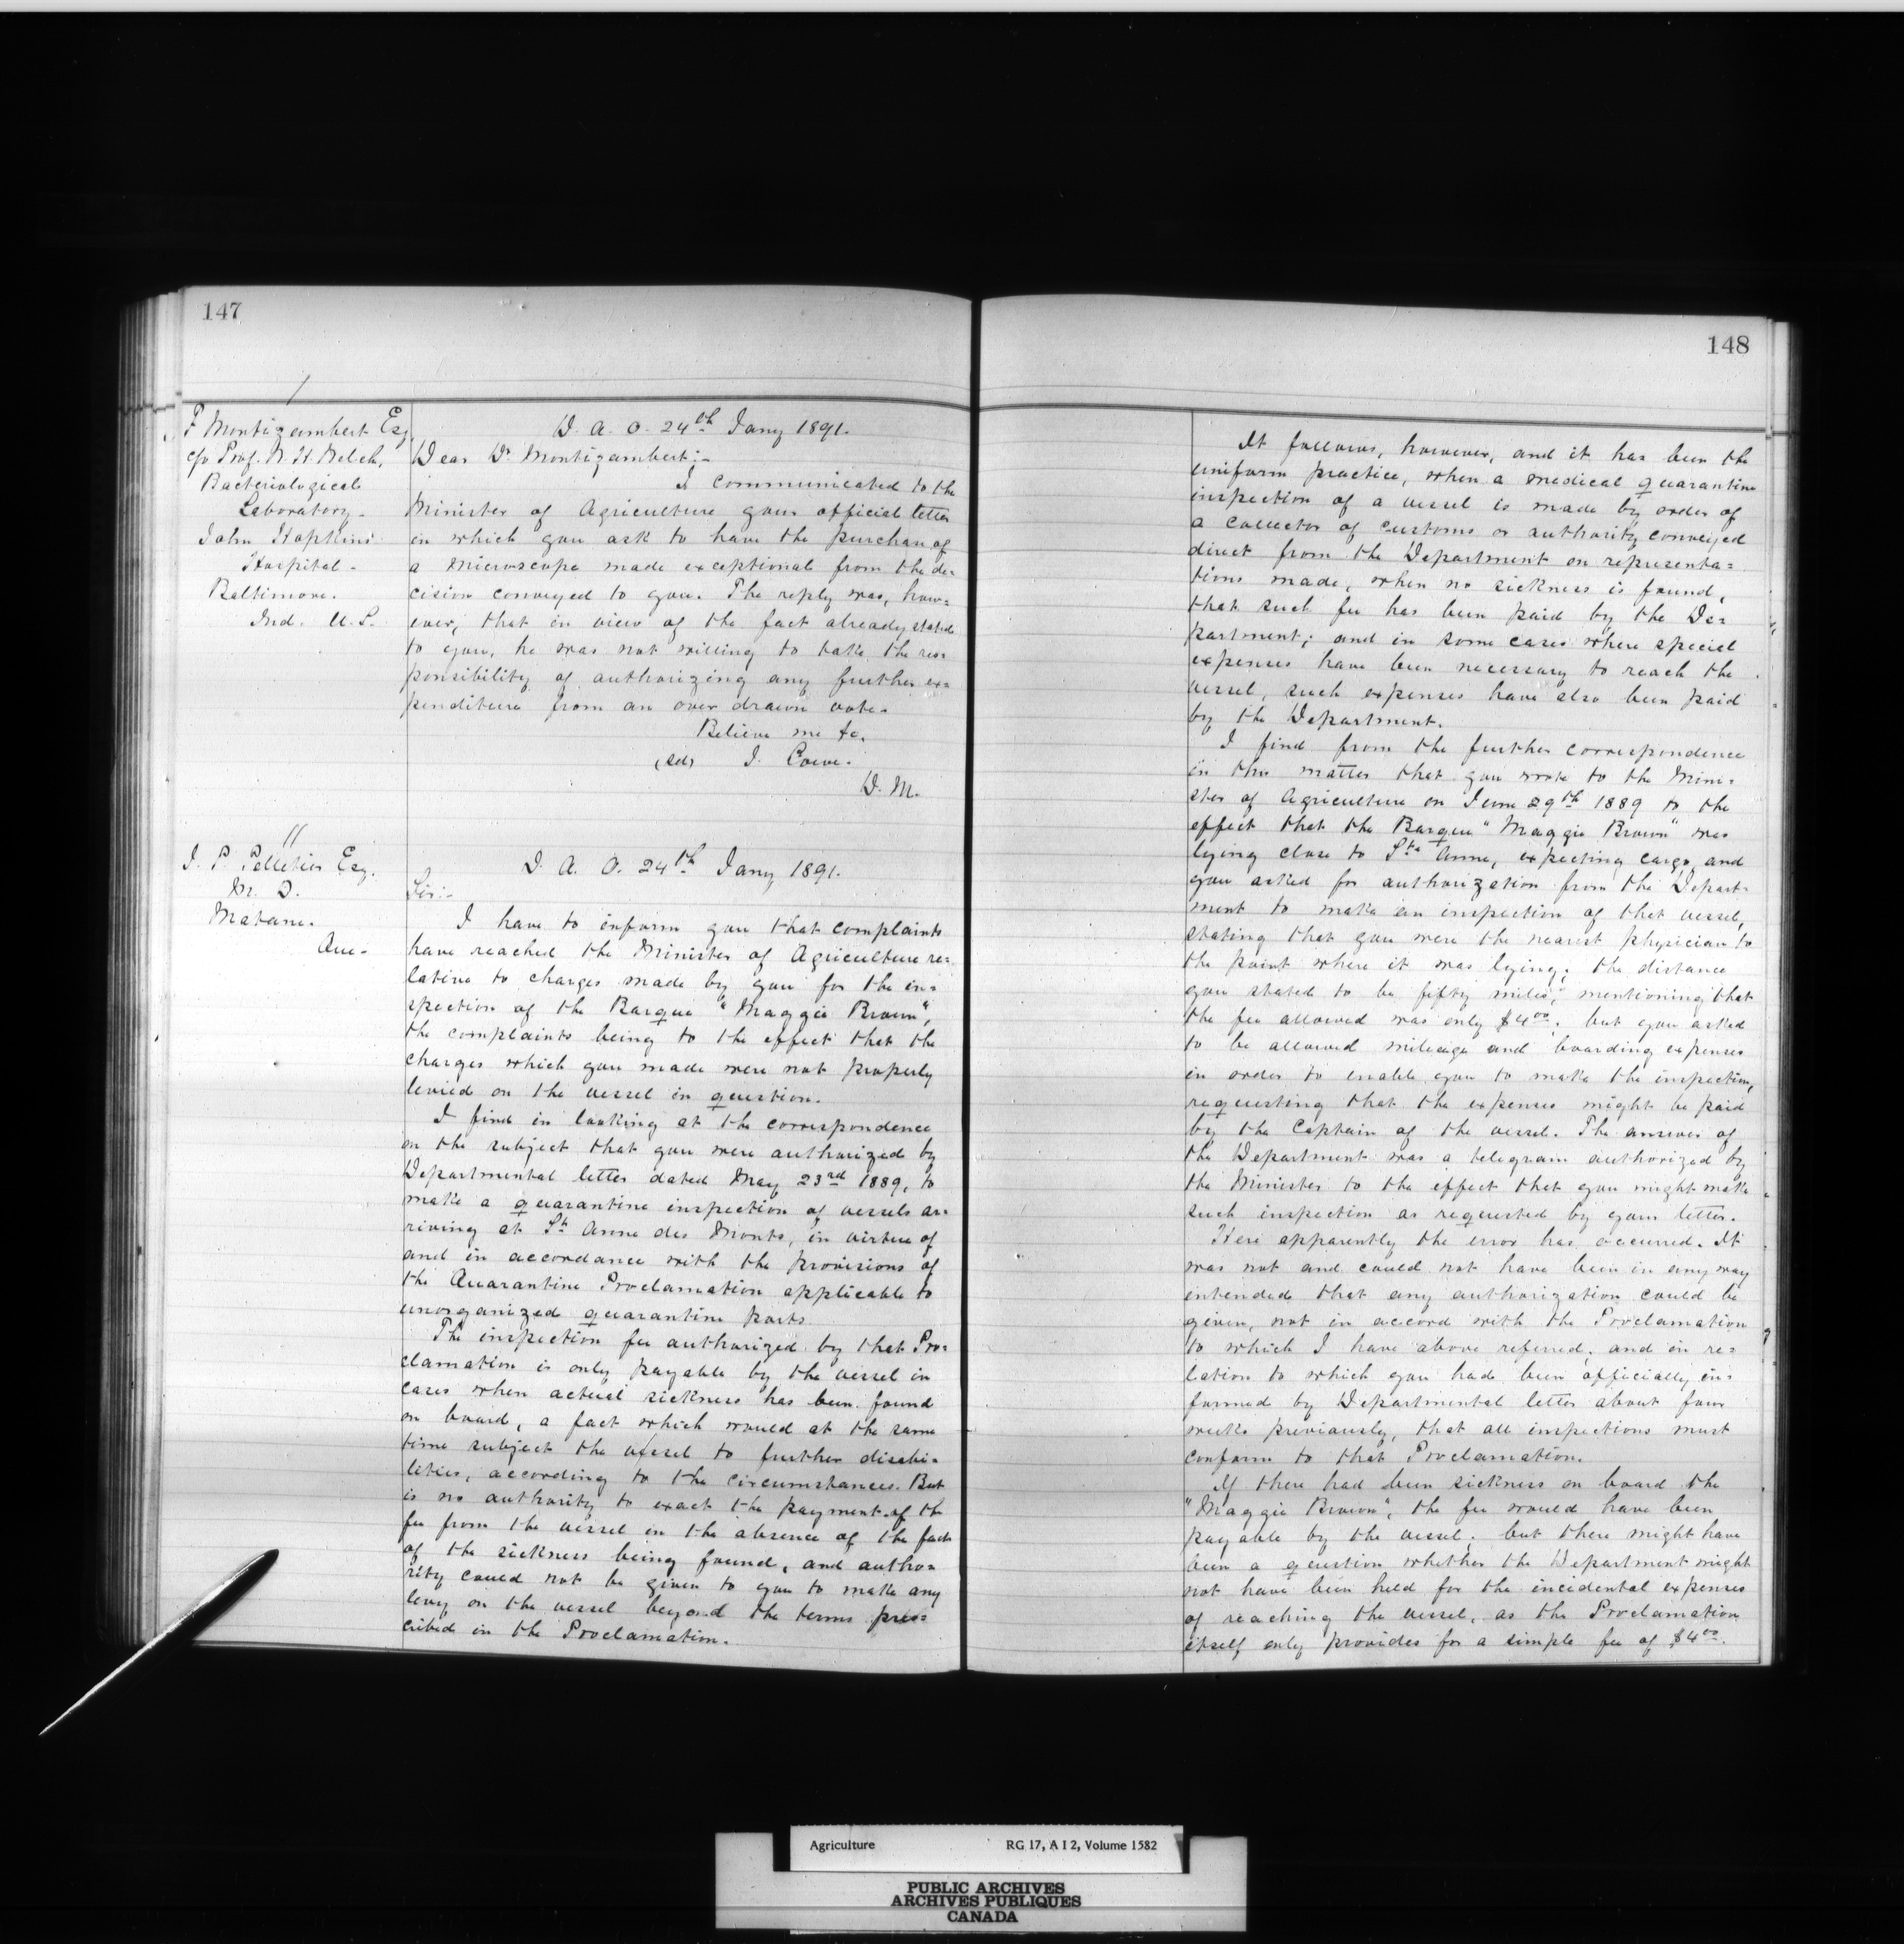 147
F Montizambert Esq.
c/o Prof. W. H. Welch,
Bacteriological
Laboratory-
John Hopkins
Hospital-
Baltimore.
Md. U.S.
D. A. O. 24th Jany 1891.
Dear Dr Montizambert:-
I communicated to the
Minister of Agriculture your official letter
in which you ask to have the purchase of
a microscope made exceptional from the de=
cision conveyed to you. The reply was, how=
ever, that in view of the fact already stated
to you, he was not willing to take the res=
ponsibility of authorizing any further ex=
penditure from an over drawn vote.
Believe me &c.
(sd) J. Lowe.
D. M.
//
J. P. Pelletier Esq.
M. D.
Matane.
Que-
D. A. O. 24th Jany 1891.
Sir:-
I have to inform you that complaints
have reached the Minister of Agriculture re=
lative to charges made by you for the in=
spection of the Barque "Maggie Brown",
the complaints being to the effect that the
charges which you made were not properly
levied on the vessel in question.
I find in looking at the correspondence
on the subject that you were authorized by
Departmental letter dated May 23rd 1889, to
make a quarantine inspection of vessels ar=
riving at St Anne des Monts, in virtue of
and in accordance with the provisions of
the Quarantine Proclamation applicable to
unorganized quarantine ports.
The inspection fee authorized by that Pro=
clamation is only payable by the vessel in
cases when actual sickness has been found
on board, a fact which would at the same
time subject the vessel to further disabi=
lities, according to the circumstances. But
is no authority to exact the payment of the
fee from the vessel in the absence of the fact
of the sickness being found, and autho=
rity could not be given to you to make any
levy on the vessel beyond the terms pres=
cribed in the Proclamation.
148
It follows, however, and it has been the
uniform practice, when a medical quarantine
inspection of a vessel is made by order of
a collector of customs or authority conveyed
direct from the Department on representa=
tions made, when no sickness is found,
that such fee has been paid by the De=
partment; and in some cases where special
expenses have been necessary to reach the
vessel, such expenses have also been paid
by the Department.
I find from the further correspondence
in this matter that you wrote to the Mini=
ster of Agriculture on June 29th 1889 to the
effect that the Barque "Maggie Brown" was
lying close to Ste Anne, expecting cargo, and
you asked for authorization from the Depart=
ment to make an inspection of that vessel,
stating that you were the nearest physician to
the point where it was lying; the distance
you stated to be fifty miles, mentioning that
the fee allowed was only $4.00, but you asked
to be allowed mileage and boarding expenses
in order to enable you to make the inspection,
requesting that the expenses might be paid
by the Captain of the vessel. The answer of
the Department was a telegram authorized by
the Minister to the effect that you might make
such inspection as requested by your letter.
Here apparently the error has occurred. It
was not and could not have been in any way
intended that any authorization could be
given, not in accord with the Proclamation
to which I have above referred; and in re=
lation to which you had been officially in=
formed by Departmental letter about four
weeks previously, that all inspections must
conform to that Proclamation.
If there had been sickness on board the
"Maggie Brown", the fee would have been
payable by the vessel; but there might have
been a question whether the Department might
not have been held for the incidental expenses
of reaching the vessel, as the Proclamation
itself only provides for a simple fee of $4.00.
Agriculture RG 17, A I 2, Volume 1582
PUBLIC ARCHIVES
ARCHIVES PUBLIQUES
CANADA